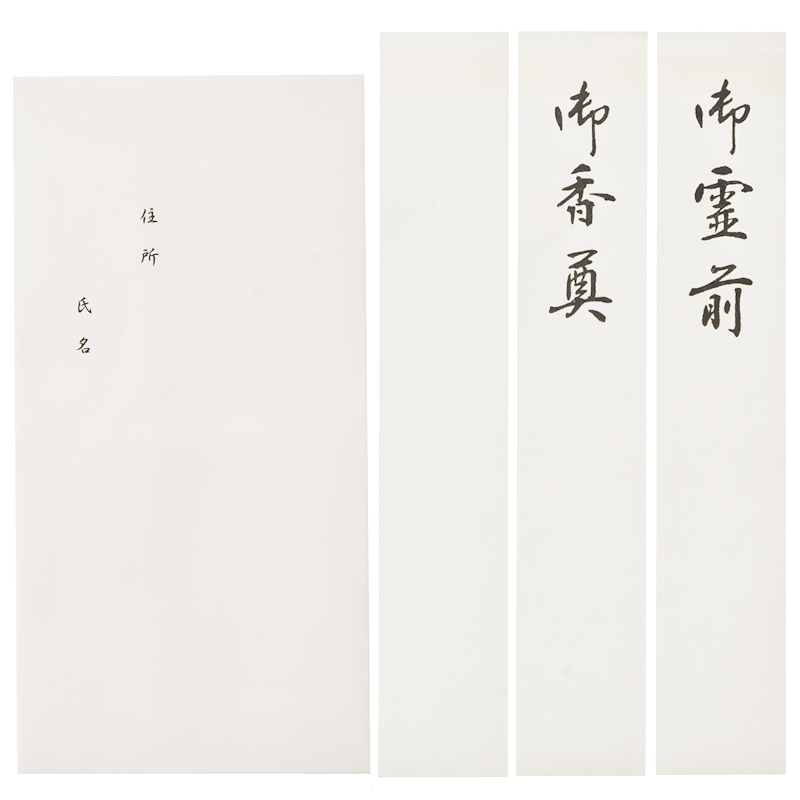 御霊前
御香奠
住所
氏名